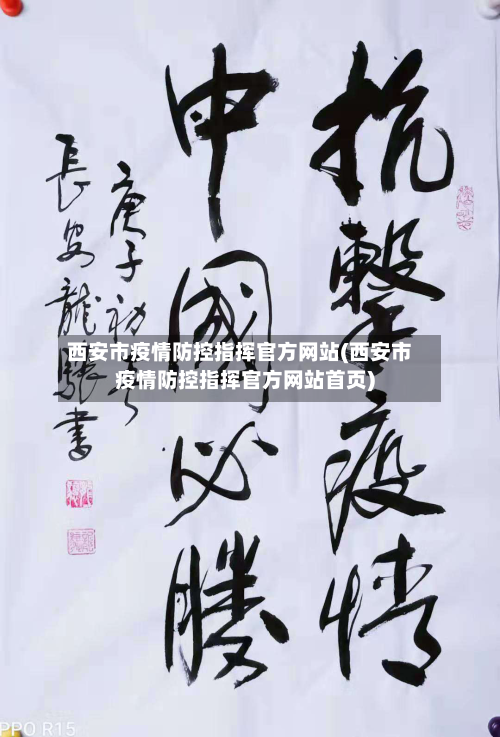 抗擊疫情
中國必勝
庚子初春
長安龍騷書
西安市疫情防控指挥官方网站(西安市
疫情防控指挥官方网站首页)
PPO R15